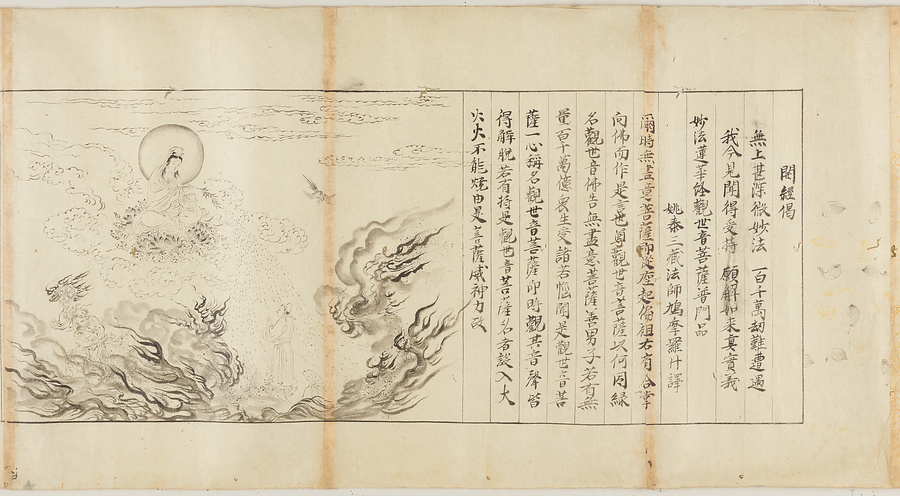 開經偈
無上甚深微妙法 百千萬劫難遭遇
我今見聞得受持 願解如來真實義
妙法蓮華經觀世音菩薩普門品
姚秦三藏法師鳩摩羅什譯
爾時無盡意菩薩即從座起偏袒右肩合掌
向佛而作是言世尊觀世音菩薩以何因緣
名觀世音佛告無盡意菩薩善男子若有無
量百千萬億衆生受諸苦惱聞是觀世音菩
薩一心稱名觀世音菩薩即時觀其音聲皆
得解脫若有持是觀世音菩薩名者設入大
火火不能燒由是菩薩威神力故